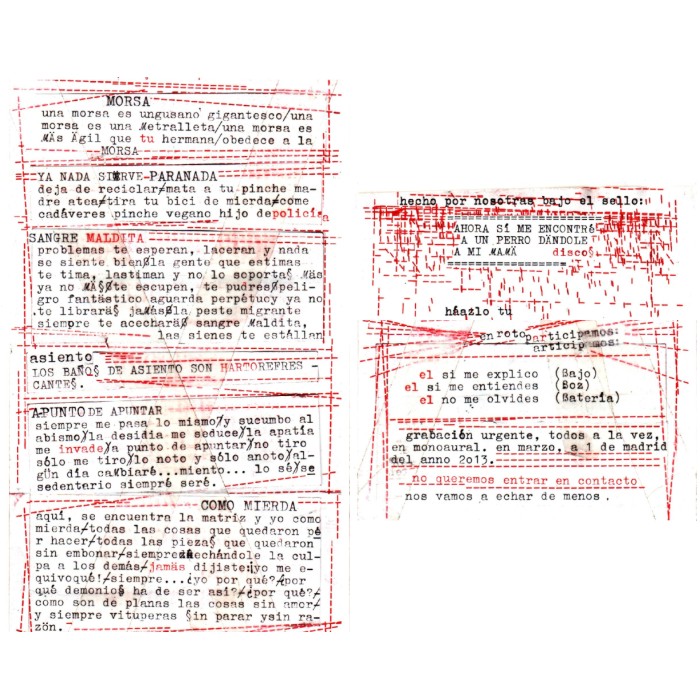 MORSA
una morsa es ungusano gigantesco/una
morsa es una metralleta/una morsa es
mÄs Ägil que tu hermana/obedece a la
MORSA
YA NADA SIRVE PARANADA
deja de reciclar/mata a tu pinche ma-
dre atea/tira tu bici de mierda/come
cadáveres pinche vegano hijo depolicía
SANGRE MALDITA
problemas te esperan, laceran y nada
se siente bien/la gente que estimas
te tima, lastiman y no lo soporta§ mÄs
ya no mÄ§/te escupen, te pudres/peli-
gro fantástico aguarda perpétuo/y ya no
te librará§ jamás/la peste migrante
siempre te acechará/ sangre maldita,
las sienes te estállan
asiento
LOS BAÑO§ DE ASIENTO SON HARTOREFRES -
CANTE§.
APUNTO DE APUNTAR
siempre me pasa lo mismo/y sucumbo al
abismo/la desidia me seduce/la apatía
me invade/a punto de apuntar/no tiro
sólo me tiro/lo noto y sólo anoto/al-
gún dia cambiaré...miento... lo sé/se
sedentario siempré seré.
COMO MIERDA
aquí, se encuentra la matríz y yo como
mierda/todas las cosas que quedaron po
r hacer/todas las pieza§ que quedaron
sin embonar/siempre echándole la cul-
pa a los demás/jamás dijiste:¡yo me e-
quivoqué!/siempre...¿yo por qué?/¿por
qué demonio§ ha de ser así?/¿por qué?/
como son de planas las cosas sin amor/
y siempre vituperas §in parar ysin ra-
zón.
hecho por nosotras bajo el sello:
AHORA SÍ ME ENCONTRé
A UN PERRO DÁNDOLE
A MI MAMÄ disco§
háazlo tu
en roto participamos:
articipamos:
el si me explico (Bajo)
el si me entiendes (Boz)
el no me olvides (Batería)
grabación urgente, todos a la vez,
en monoaural. en marzo, a 1 de madrid
del anno 2013.
no queremos entrar en contacto
nos vamos a echar de menos .